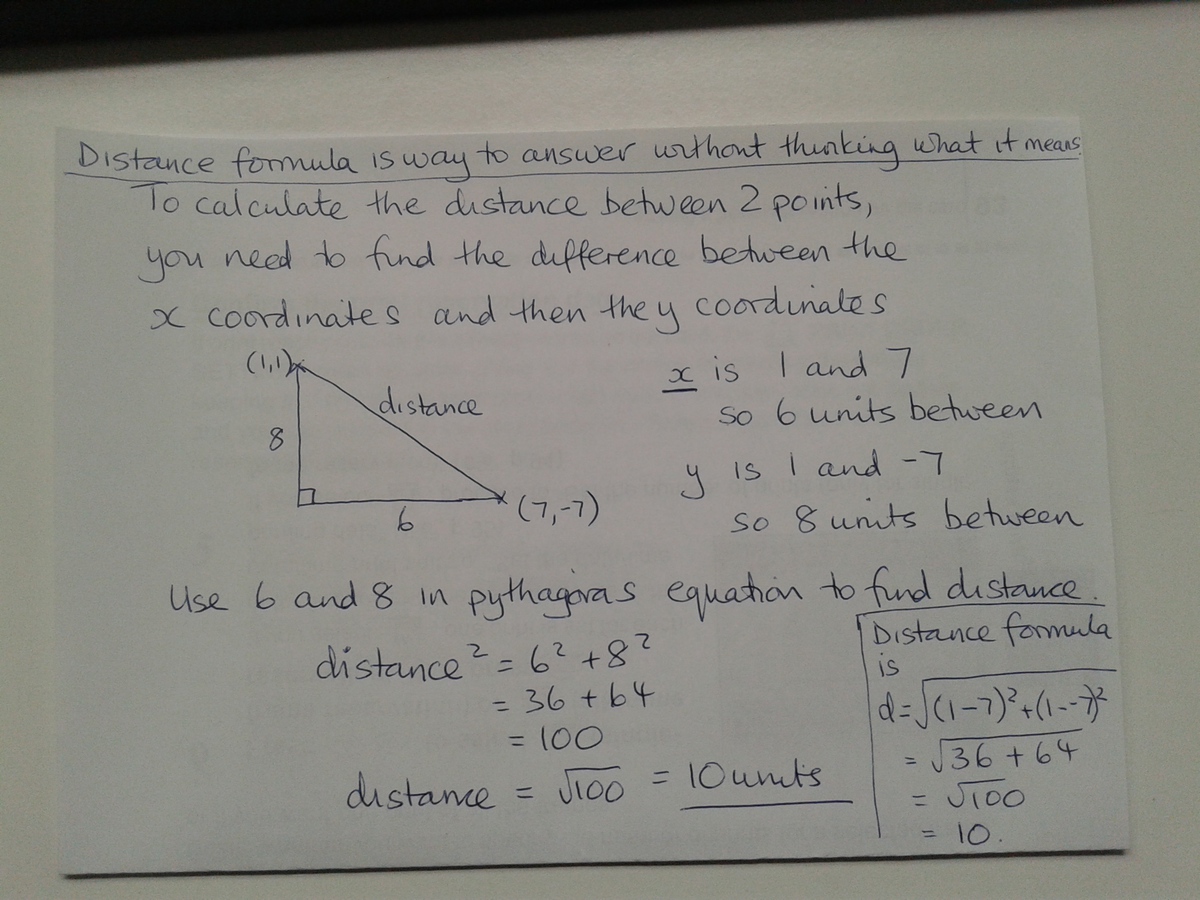 Distance formula is way to answer without thinking what it means.
To calculate the distance between 2 points,
you need to find the difference between the
x coordinates and then the y coordinates
(1,1)
distance
8
6
(7,-7)
x is 1 and 7
so 6 units between
y is 1 and -7
so 8 units between
Use 6 and 8 in pythagoras equation to find distance.
distance² = 6² + 8²
= 36 + 64
= 100
distance = √100 = 10 units
Distance formula
is
d = √(1-7)² + (1--7)²
= √36 + 64
= √100
= 10.